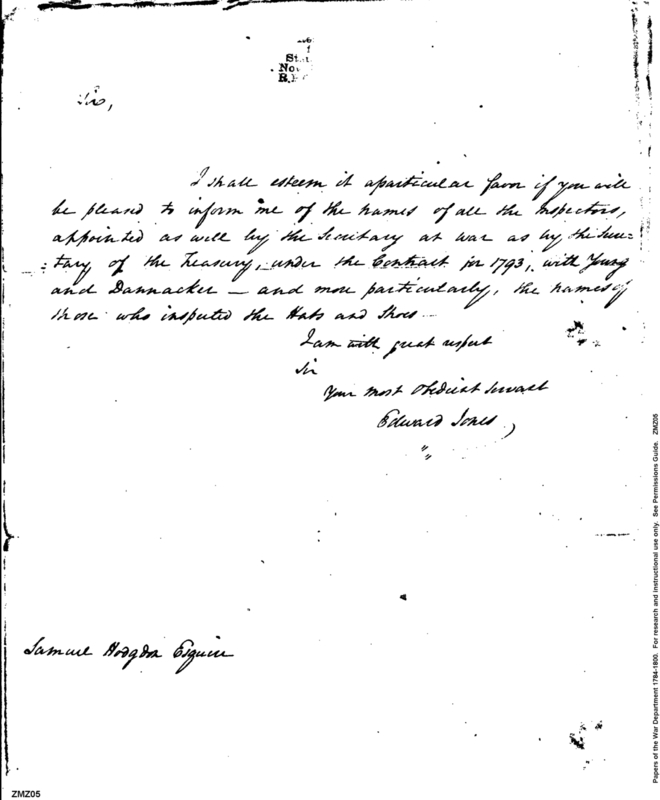 Sir,
I shall esteem it a particular favor if you will
be pleased to inform me of the names of all the Inspectors,
appointed as well by the Secretary at war as by the Secre-
tary of the Treasury, under the Contract for 1793, with Young
and Dannacker — and more particularly, the names of
those who inspected the Hats and Shoes —
I am with great respect
Sir
Your most Obedient Servant
Edward Jones
Samuel Hodgdon Esquire
ZMZ05
Papers of the War Department 1784-1800. For research and instructional use only. See Permissions Guide. ZMZ05